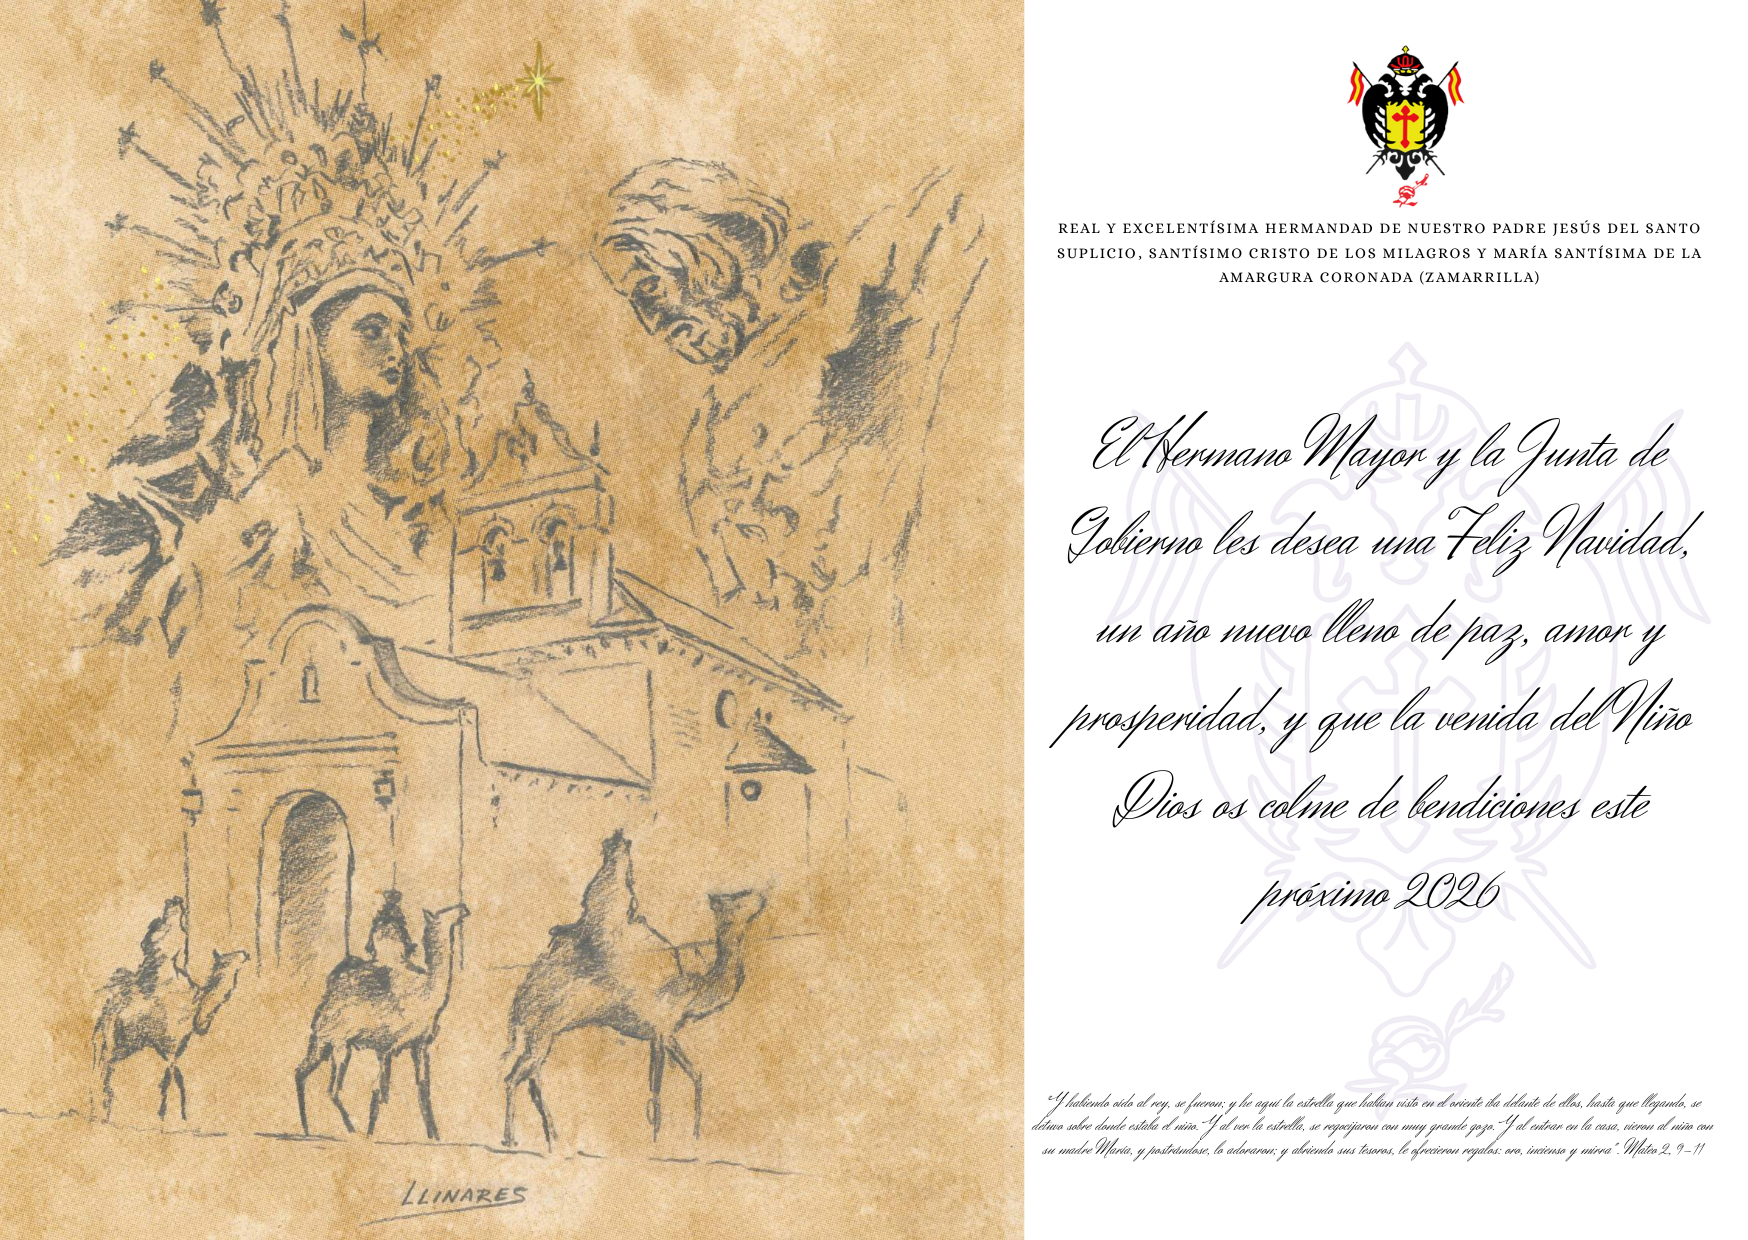 LLINARES
REAL Y EXCELENTÍSIMA HERMANDAD DE NUESTRO PADRE JESÚS DEL SANTO
SUPLICIO, SANTÍSIMO CRISTO DE LOS MILAGROS Y MARÍA SANTÍSIMA DE LA
AMARGURA CORONADA (ZAMARRILLA)
El Hermano Mayor y la Junta de
Gobierno les desea una Feliz Navidad,
un año nuevo lleno de paz, amor y
prosperidad, y que la venida del Niño
Dios os colme de bendiciones este
próximo 2026
"Y habiendo oído al rey, se fueron; y he aquí la estrella que habían visto en el oriente iba delante de ellos, hasta que llegando, se
detuvo sobre donde estaba el niño. Y al ver la estrella, se regocijaron con muy grande gozo. Y al entrar en la casa, vieron al niño con
su madre María, y postrándose, lo adoraron; y abriendo sus tesoros, le ofrecieron regalos: oro, incienso y mirra". Mateo 2, 9-11